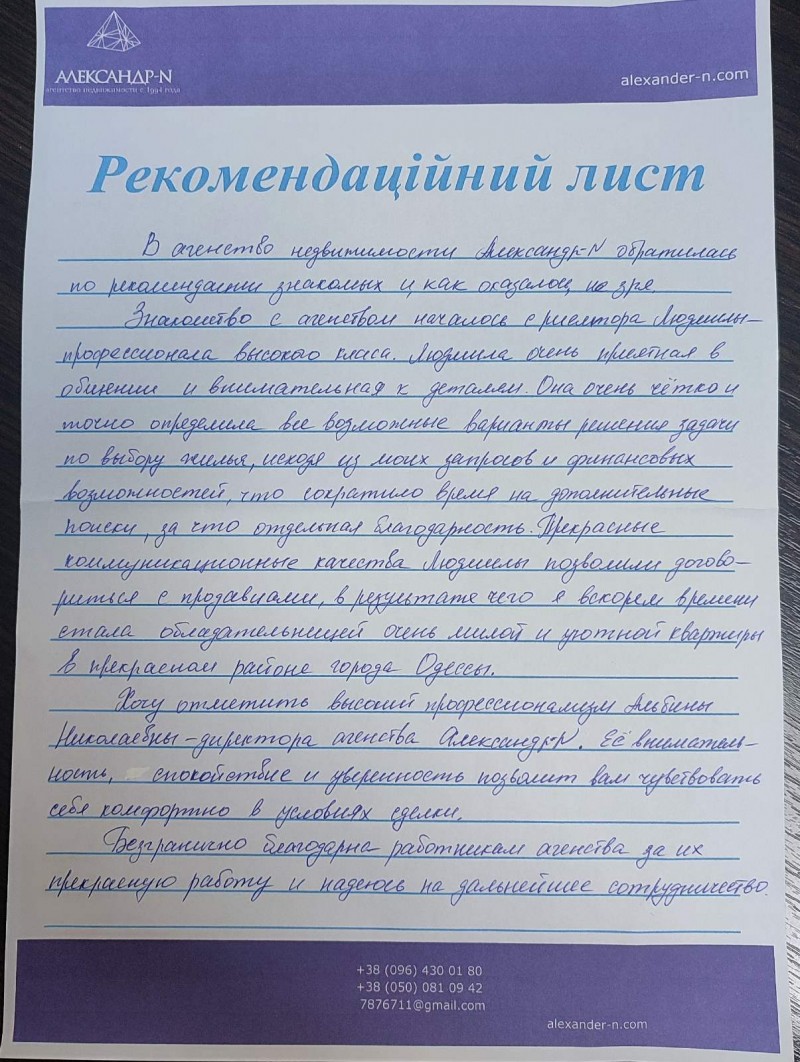 АЛЕКСАНДР-N
агентство недвижимости с 1994 года
alexander-n.com
Рекомендаційний лист
В агенство недвижимости Александр-N обратилась
по рекомендации знакомых и, как оказалось, не зря.
Знакомство с агенством началось с риелтора Людмилы–
профессионала высокого класа. Людмила очень приятная в
общении и внимательная к деталям. Она очень чётко и
точно определила все возможные варианты решения задачи
по выбору жилья, исходя из моих запросов и финансовых
возможностей, что сократило время на дополнительные
поиски, за что отдельная благодарность. Прекрасные
коммуникационные качества Людмилы позволили догово–
риться с продавцами, в результате чего я вскорем времени
стала обладательницей очень милой и уютной квартиры
в прекрасном районе города Одессы.
Хочу отметить высокий профессионализм Альбины
Николаевны – директора агенства Александр-N. Её вниматель–
ность, спокойствие и уверенность позволит вам чувствовать
себя комфортно в условиях сделки.
Безгранично благодарна работникам агенства за их
прекрасную работу и надеюсь на дальнейшее сотрудничество.
+38 (096) 430 01 80
+38 (050) 081 09 42
7876711@gmail.com
alexander-n.com